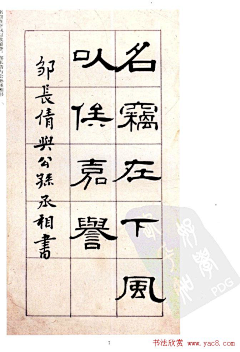 名竊在下風
以俟嘉譽
鄒長倩與公孫丞相書
7
书法欣赏 www.yac8.com